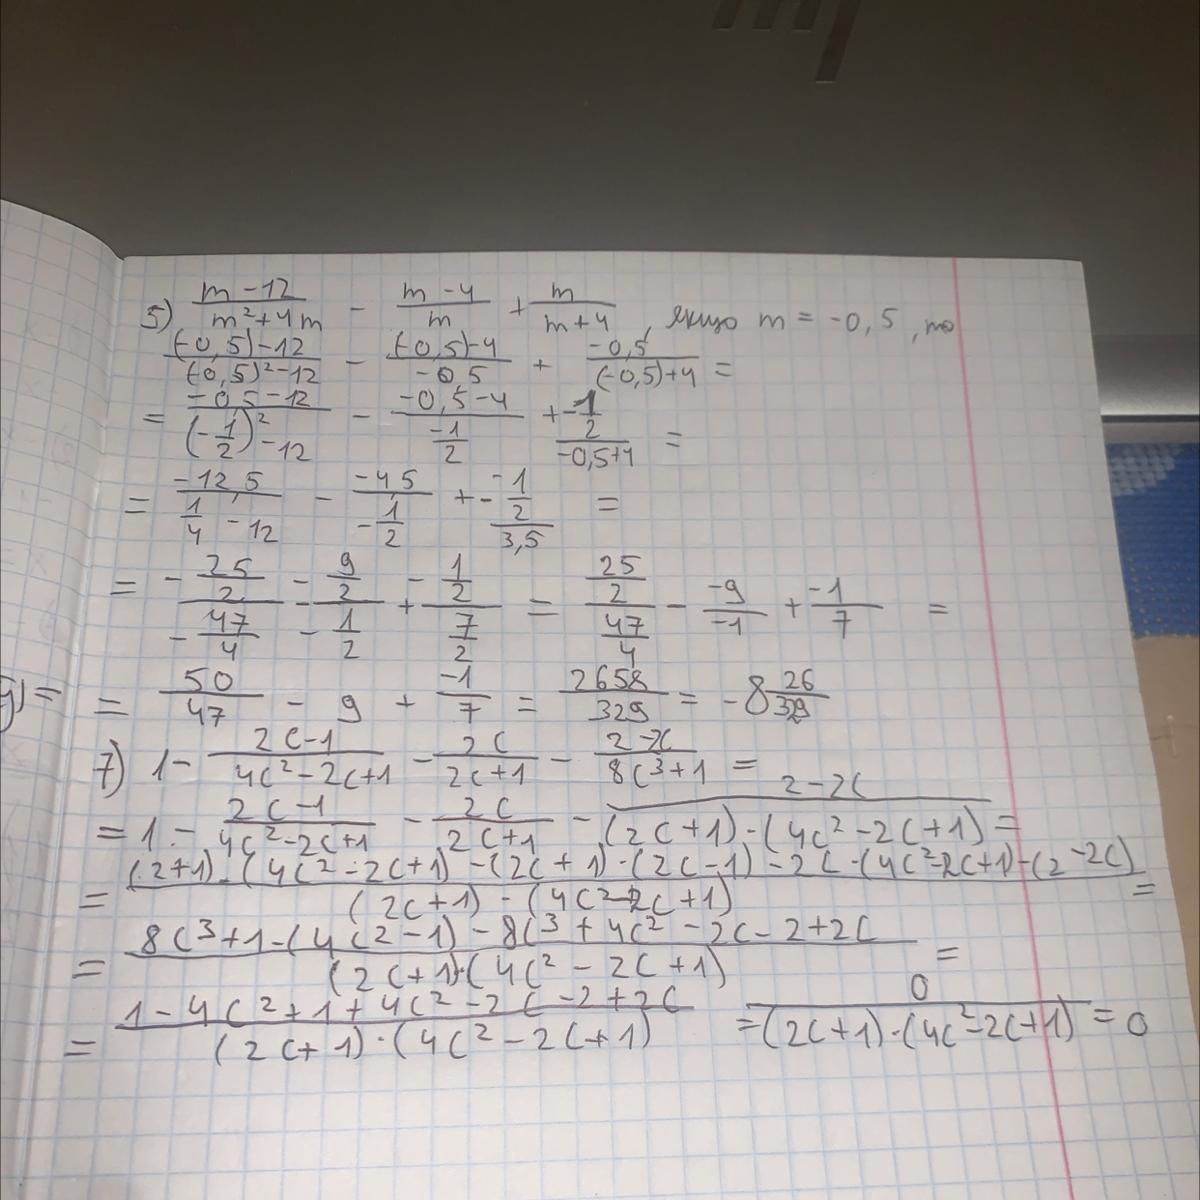 5) (m-12)/(m²+4m) - (m-4)/m + m/(m+4), якщо m = -0,5, то
((-0,5)-12)/((-0,5)²-12) - ((-0,5)-4)/(-0,5) + (-0,5)/((-0,5)+4) =
= (-0,5-12)/((-1/2)²-12) - (-0,5-4)/(-1/2) + (-1/2)/(-0,5+4) =
= (-12,5)/(1/4-12) - (-4,5)/(-1/2) + (-1/2)/(3,5) =
= (-25/2)/(-47/4) - (-9/2)/(-1/2) + (-1/2)/(7/2) = (25/2)/(47/4) - (-9)/(-1) + (-1)/7 =
= 50/47 - 9 + (-1)/7 = 2658/329 = -8 26/329
7) 1 - (2c-1)/(4c²-2c+1) - 2c/(2c+1) - (2-2c)/(8c³+1) =
= 1 - (2c-1)/(4c²-2c+1) - 2c/(2c+1) - (2-2c)/((2c+1)·(4c²-2c+1)) =
= ((2+1)·(4c²-2c+1)-(2c+1)·(2c-1)-2c·(4c²-2c+1)-(2-2c))/((2c+1)·(4c²-2c+1)) =
= (8c³+1-(4c²-1)-8c³+4c²-2c-2+2c)/((2c+1)·(4c²-2c+1)) =
= (1-4c²+1+4c²-2c-2+2c)/((2c+1)·(4c²-2c+1)) = 0/((2c+1)·(4c²-2c+1)) = 0